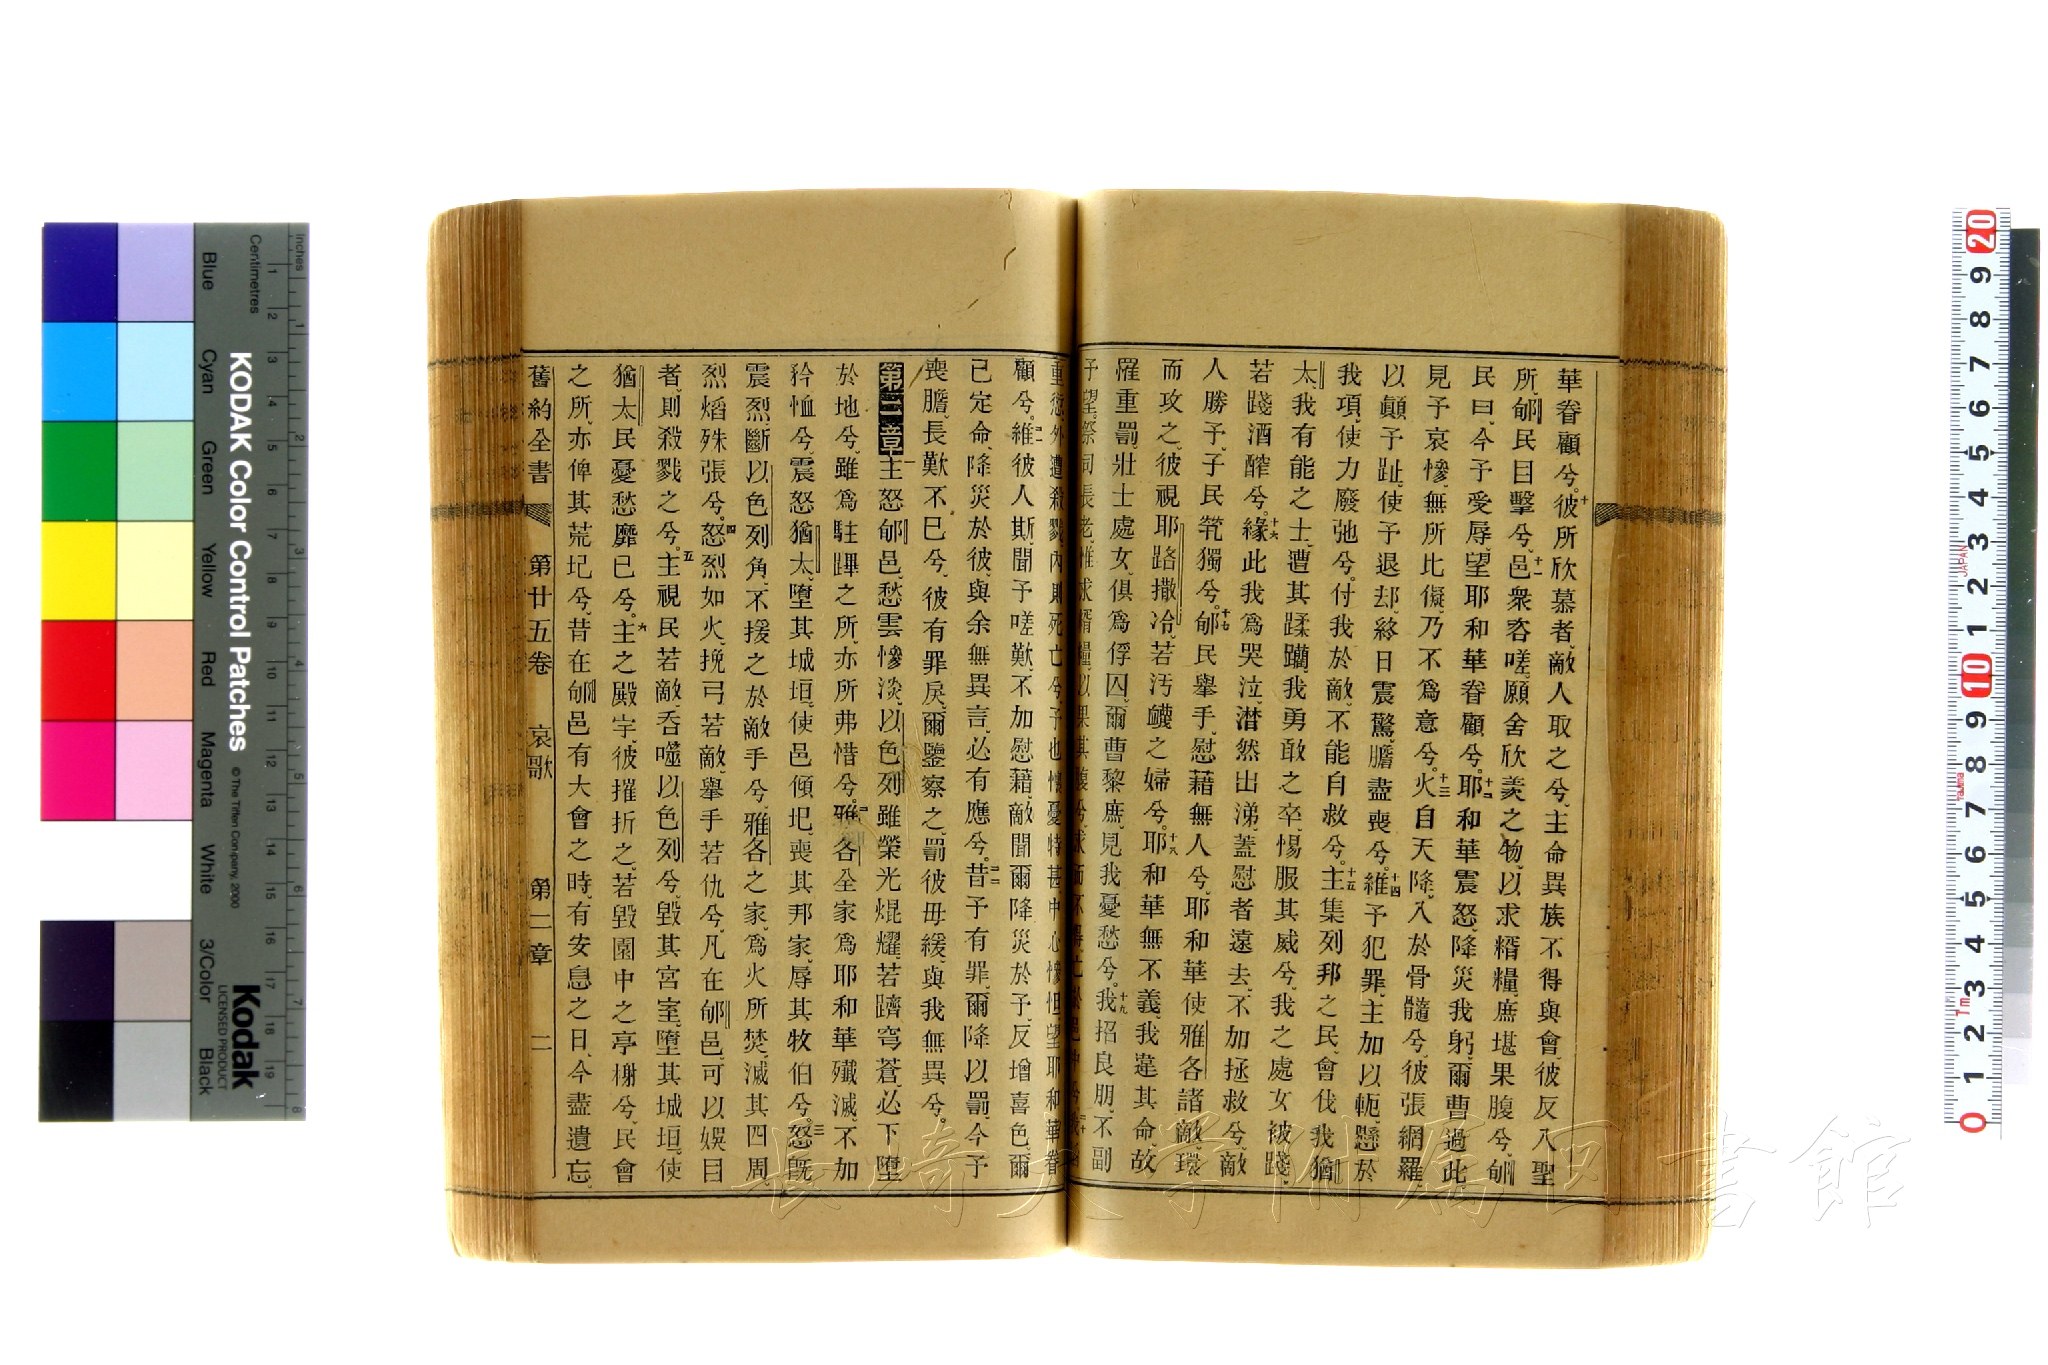 華眷顧兮彼所欣慕者敵人取之兮主命異族不得與會彼反入聖
所郇民目擊兮邑眾咨嗟願舍欣羨之物以求糈糧庶堪果腹兮郇
民曰今予受辱望耶和華眷顧兮耶和華震怒降災我躬爾曹過此
見予哀慘無所比儗乃不為意兮火自天降入於骨髓兮彼張網羅
以顛予趾使予退却終日震驚膽盡喪兮維予犯罪主加以軛懸於
我項使力廢弛兮付我於敵不能自救兮主集列邦之民會伐我猶
太我有能之士遭其蹂躪我勇敢之卒惕服其威兮我之處女被踐
若踐酒醡兮緣此我為哭泣潸然出涕蓋慰者遠去不加拯救兮敵
人勝予予民煢獨兮郇民舉手慰藉無人兮耶和華使雅各諸敵環
而攻之彼視耶路撒冷若汚衊之婦兮耶和華無不義我違其命故
罹重罰壯士處女俱為俘囚爾曹黎庶見我憂愁兮我招良朋不副
予望祭司長老惟求糈糧以果其腹兮求而不得亡於邑中兮
重愆外遭殺戮內則死亡兮予也懷憂特甚中心慘怛望耶和華眷
顧兮維彼人斯聞予嗟歎不加慰藉敵聞爾降災於予反增喜色爾
已定命降災於彼與余無異言必有應兮昔予有罪爾降以罰今予
喪膽長歎不已兮彼有罪戾爾鑒察之罰彼毋緩與我無異兮
第二章主怒郇邑愁雲慘淡以色列雖榮光焜耀若躋穹蒼必下墮
於地兮雖為駐蹕之所亦所弗惜兮雅各全家為耶和華殲滅不加
矜恤兮震怒猶太墮其城垣使邑傾圯喪其邦家辱其牧伯兮怒旣
震烈斷以色列角不援之於敵手兮雅各之家為火所焚滅其四周
烈熖殊張兮怒烈如火挽弓若敵舉手若仇兮凡在郇邑可以娛目
者則殺戮之兮主視民若敵吞噬以色列兮毀其宮室墮其城垣使
猶太民憂愁靡已兮主之殿宇彼摧折之若毀園中之亭榭兮民會
之所亦俾其荒圮兮昔在郇邑有大會之時有安息之日今盡遺忘
舊約全書 第廿五卷 哀歌 第二章 二
KODAK Color Control Patches
© The Tiffen Company, 2000
Kodak
LICENSED PRODUCT
Inches
Centimetres
Blue
Cyan
Green
Yellow
Red
Magenta
White
3/Color
Black
長崎大學附属図書館
JAPAN